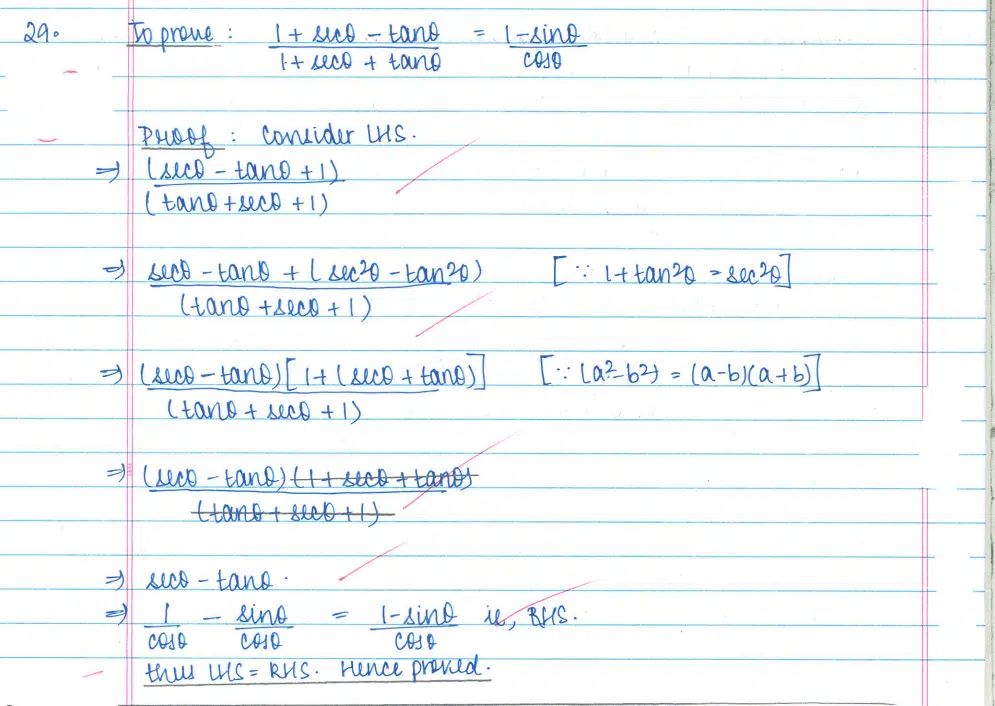 29. To prove : 1 + secθ - tanθ / 1 + secθ + tanθ = 1 - sinθ / cosθ
Proof : Consider LHS.
⇒ (secθ - tanθ + 1) / (tanθ + secθ + 1)
⇒ secθ - tanθ + (sec²θ - tan²θ) / (tanθ + secθ + 1) [∵ 1 + tan²θ = sec²θ]
⇒ (secθ - tanθ)[1 + (secθ + tanθ)] / (tanθ + secθ + 1) [∵ (a² - b²) = (a - b)(a + b)]
⇒ (secθ - tanθ)(1 + secθ + tanθ) / (tanθ + secθ + 1)
⇒ secθ - tanθ.
⇒ 1 / cosθ - sinθ / cosθ = 1 - sinθ / cosθ ie, RHS.
thus LHS = RHS. Hence proved.